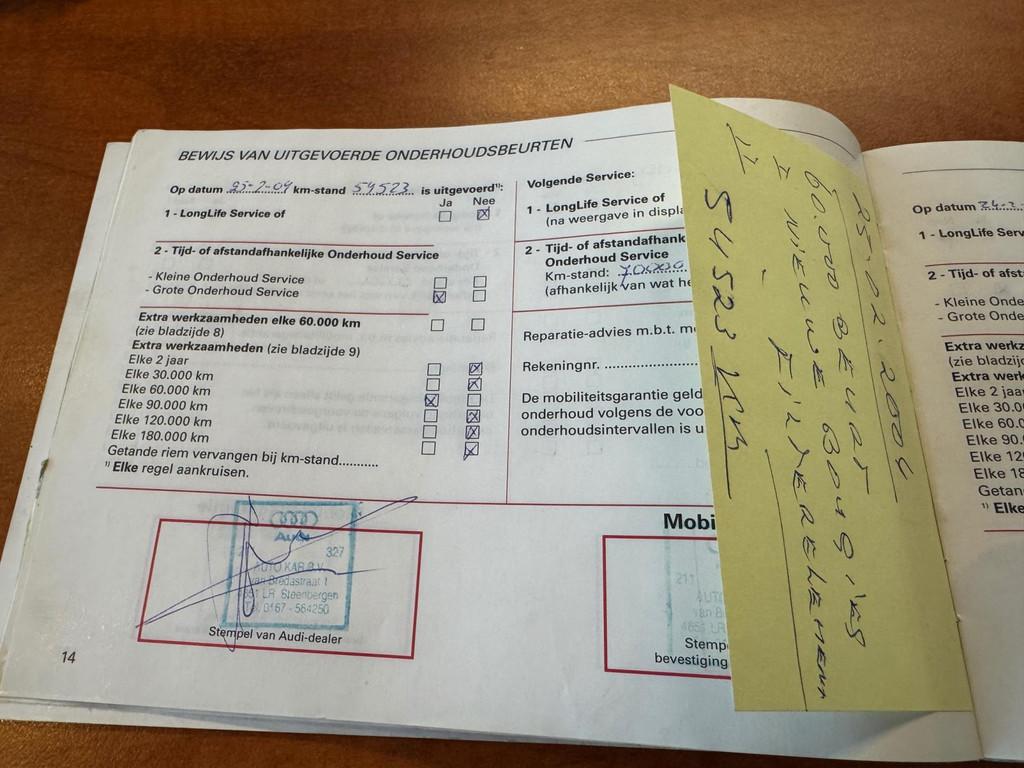 BEWIJS VAN UITGEVOERDE ONDERHOUDSBEURTEN
Op datum 25-2-04 km-stand 54523 is uitgevoerd¹⁾:
Ja Nee
1 - LongLife Service of
2 - Tijd- of afstandafhankelijke Onderhoud Service
- Kleine Onderhoud Service
- Grote Onderhoud Service
Extra werkzaamheden elke 60.000 km
(zie bladzijde 8)
Extra werkzaamheden (zie bladzijde 9)
Elke 2 jaar
Elke 30.000 km
Elke 60.000 km
Elke 90.000 km
Elke 120.000 km
Elke 180.000 km
Getande riem vervangen bij km-stand...........
¹⁾ Elke regel aankruisen.
Audi
327
AUTO KAR B.V.
van Bredastraat 1
4651 LR Steenbergen
Tel. 0167 - 564250
Stempel van Audi-dealer
14
Volgende Service:
1 - LongLife Service of
(na weergave in displa
2 - Tijd- of afstandafhank
Onderhoud Service
Km-stand:
(afhankelijk van wat he
Reparatie-advies m.b.t. m
Rekeningnr. ..................
De mobiliteitsgarantie geld
onderhoud volgens de voo
onderhoudsintervallen is u
Mobi
211
AUTO
van B
Stemp
bevestiging
25-02-2004
60.000 BEURT
11 NIEUWE BOUGIES
11 FILTERELEMENT
54523 km
Op datum
1 - LongLife Serv
2 - Tijd- of afst
- Kleine Onde
- Grote Onde
Extra werkz
(zie bladzijd
Extra werk
Elke 2 jaa
Elke 30.0
Elke 60.0
Elke 90.
Elke 12
Elke 18
Getan
¹⁾ Elke